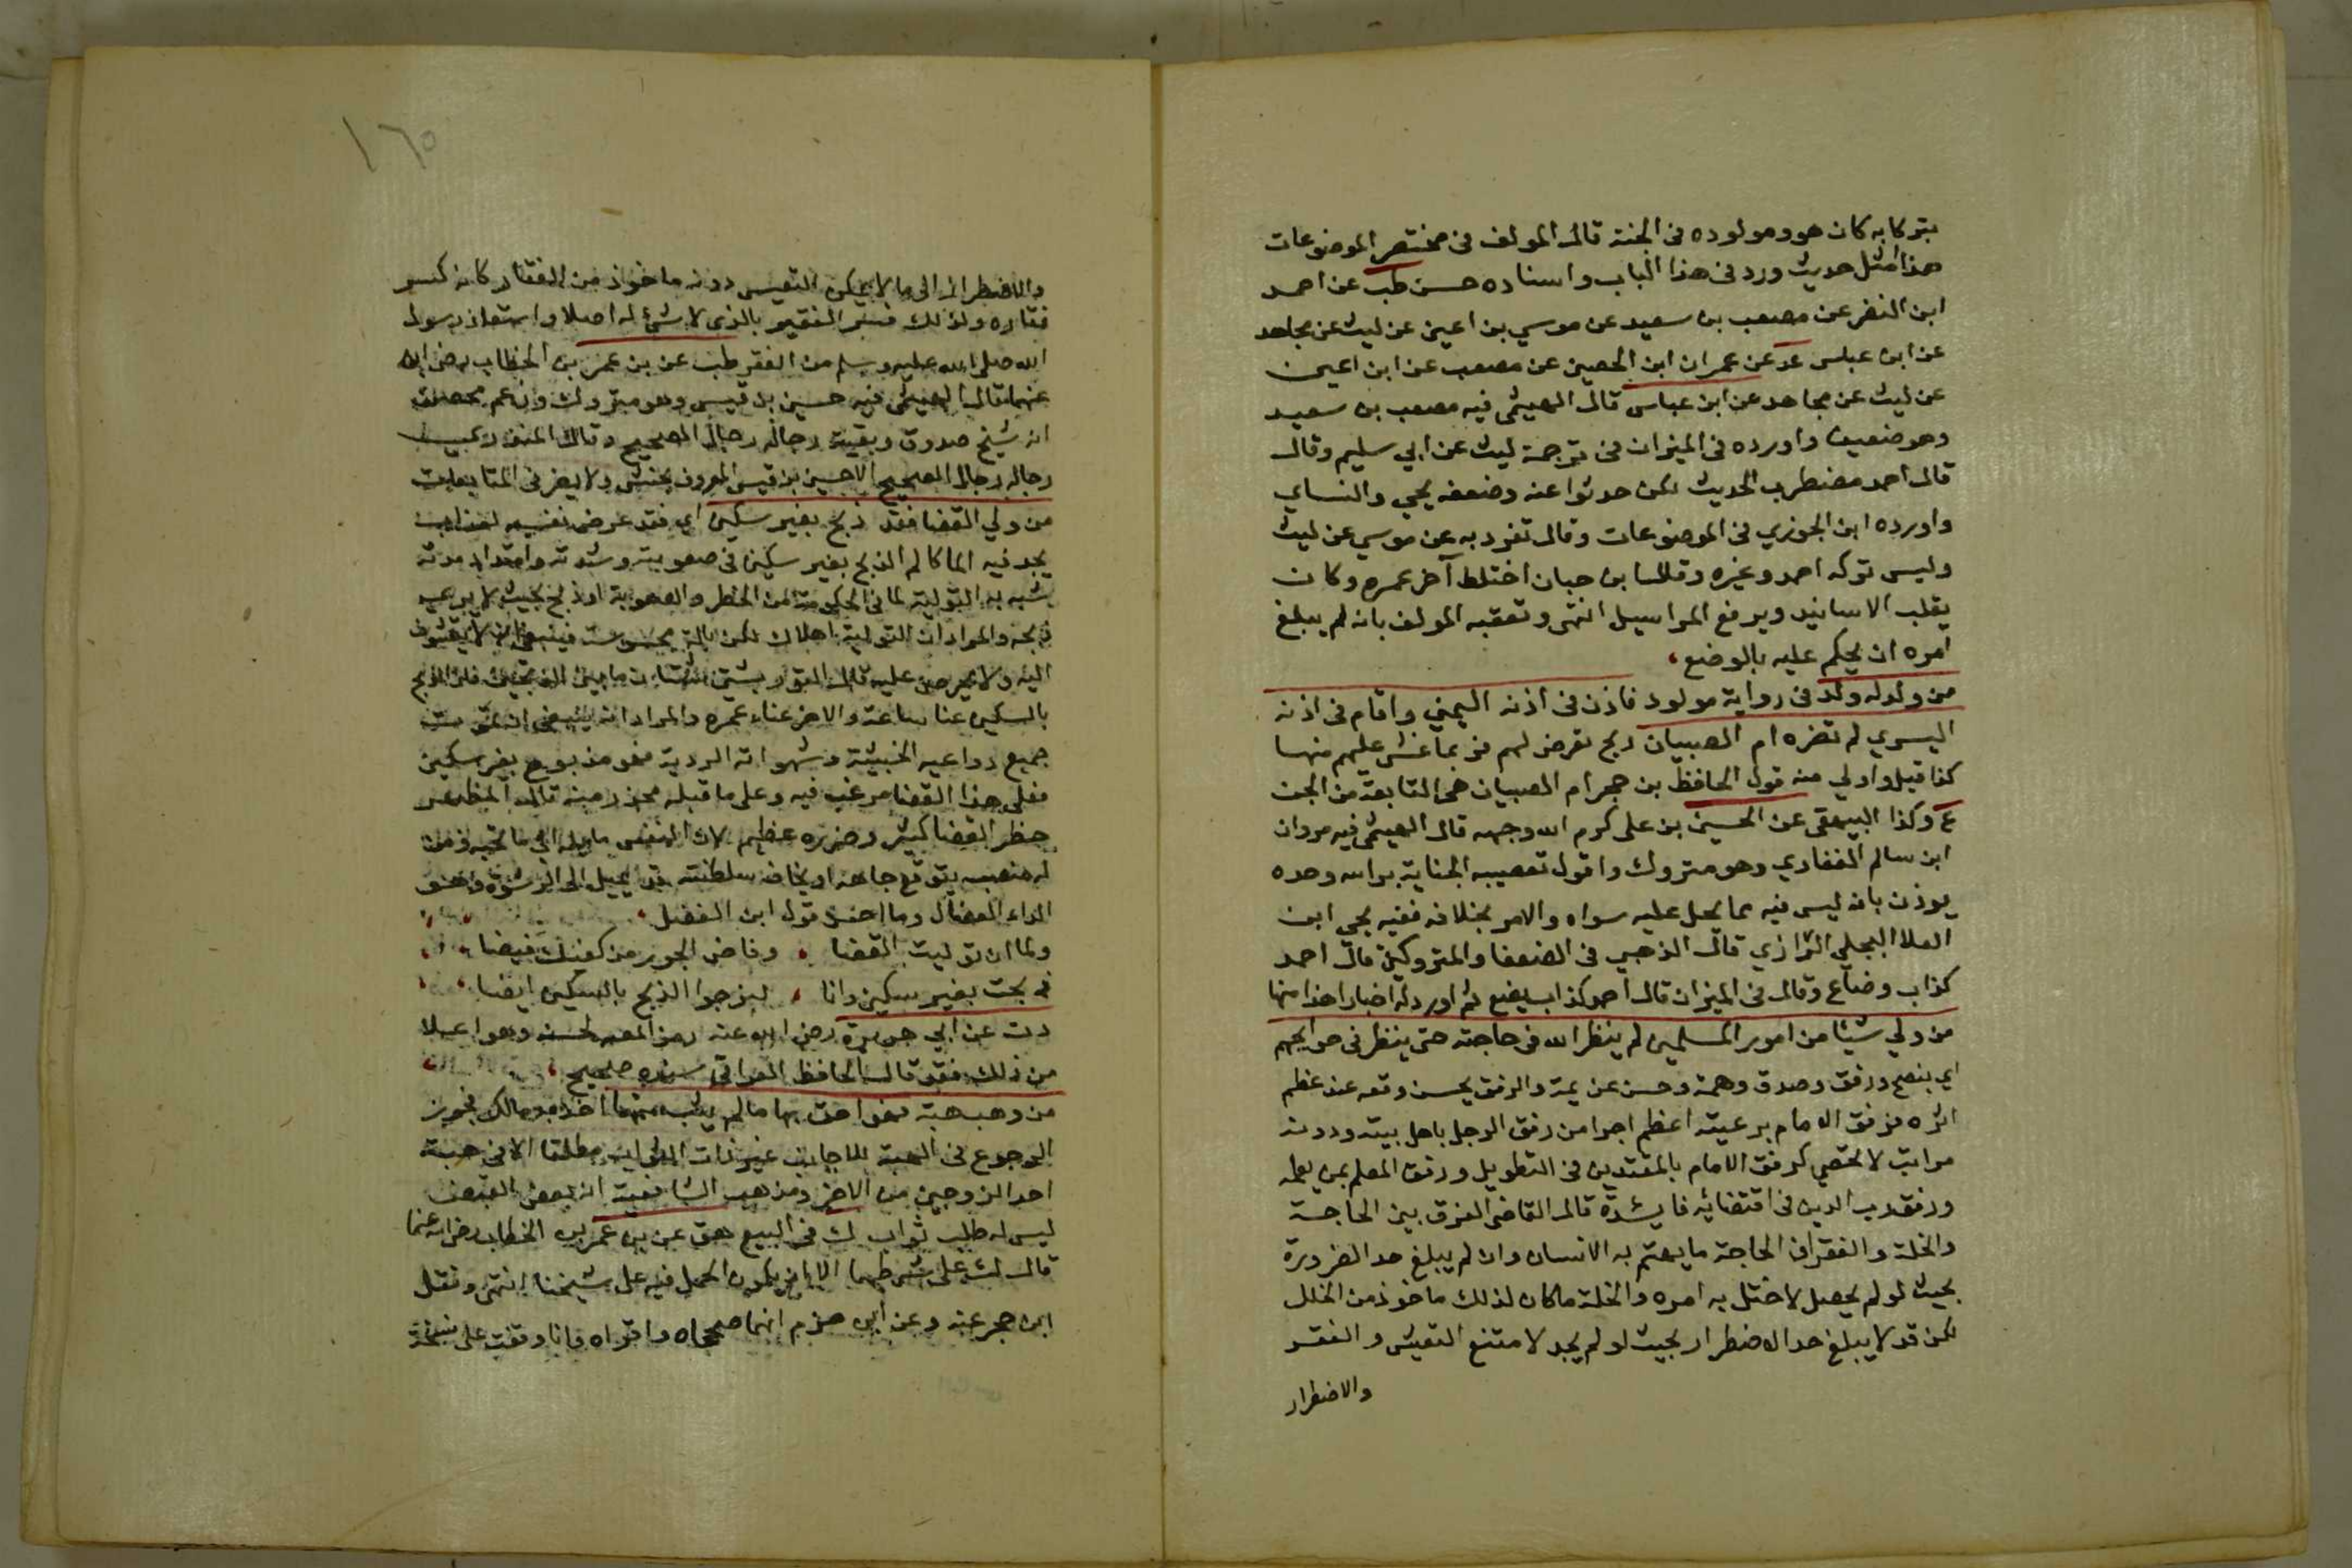 بتركا به كان هو ومولوده فى الجنة قال المولف فى مختصر الموضوعات
هذا امثل حديث ورد فى هذا الباب واسناده حسن طب عن احمد
ابن النضر عن مصعب بن سعيد عن موسي بن اعين عن ليث عن مجاهد
عن ابن عباس عد عن عمران ابن الحصين عن مصعب عن ابن اعين
عن ليث عن مجاهد عن ابن عباس قال الهيثمى فيه مصعب بن سعيد
وهو ضعيف واورده فى الميزان فى ترجمة ليث عن ابي سليم وقال
قال احمد مضطرب الحديث لكن حدثوا عنه وضعفه يحي والنساي
واورده ابن الجوزي فى الموضوعات وقال تفرد به عن موسي عن ليث
وليس تركه احمد وغيره وقال ابن حبان اختلط آخر عمره وكان
يقلب الاسانيد ويرفع المراسيل انتهى وتعقبه المولف بانه لم يبلغ
امره ان يحكم عليه بالوضع
من ولد له ولد فى رواية مولود فاذن فى اذنه اليمني واقام فى اذنه
اليسري لم تضره ام الصبيان ريح تعرض لهم فربما غشى عليهم منها
كذا قيل واولي منه قول الحافظ بن حجر ام الصبيان هى التابعة من الجن
ع وكذا البيهقى عن الحسين بن على كرم الله وجهه قال الهيثمى فيه مروان
ابن سالم الغفاري وهو متروك واقول تعصيبه الجناية براسه وحده
يوذن بانه ليس فيه مما يحمل عليه سواه والامر بخلافه ففيه يحي ابن
العلا البجلي الرازي قال الذهبي فى الضعفا والمتروكين قال احمد
كذاب وضاع وقال فى الميزان قال احمد كذاب يضع ثم اورد له اخبارا هذا منها
من ولي شيئا من امور المسلمين لم ينظر الله فى حاجته حتى ينظر فى حوايجهم
اي بنصح ورفق وصدق وهمة وحسن عزيمة والرفق يحسن وقعه عند عظم
اثره فرفق الامام برعيته اعظم اجرا من رفق الرجل باهل بيته ودونه
مراتب لا تحصي كرفق الامام بالمقتدين فى التطويل ورفق المعلم بمن يعلمه
ورفق رب الدين فى اقتضائه فايدة قال القاضي الفرق بين الحاجة
والخلة والفقر ان الحاجة ما يهتم به الانسان وان لم يبلغ حد الضرورة
بحيث لو لم يحصل لاختل به امره والخلة ما كان لذلك ماخوذ من الخلل
لكن قد لا يبلغ حد الاضطرار بحيث لو لم يجد لامتنع التعيش والفقر
والاضطرار
١٦٥
والاضطرار الى ما لا يمكن التعيش دونه ماخوذ من الفقار كانه كسر
فقاره ولذلك فسر الفقير بالذى لا شئ له اصلا واستعاذ رسول
الله صلى الله عليه وسلم من الفقر طب عن بن عمر بن الخطاب رضى الله
عنهما قال الهيثمى فيه حسين بن قيس وهو متروك وزعم محصن
انه شيخ صدوق وبقية رجاله رجال الصحيح وقال المنذري
رجاله رجال الصحيح الا حسين بن قيس المعروف بحنش ولا يضر فى المتابعات
من ولي القضا فقد ذبح بغير سكين اي فقد عرض نفسه لعذاب
يجد فيه الما كالم الذبح بغير سكين فى صعوبته وشدته وامتداد مدته
شبه به التولية لما فى الحكومة من الخطر والصعوبة او ذبح بحيث لا يرى
ذبحه والمراد ان التولية اهلاك لكن بالة محسوسة فينبغى ان لا يتشوف
اليه ولا يحرص عليه قال التوربشتي شتان ما بين الذبحين فان الذبح
بالسكين عنا ساعة والاخر عناء عمره والمراد انه ينبغى ان تموت
جميع دواعيه الخبيثة وشهواته الردية فهو مذبوح بغير سكين
فعلى هذا القضا مرغب فيه وعلى ما قبله محذر منه قال المظهر
خطر القضا كثير وضرره عظيم لان النفس مايلة الى ما تحبه ومن
له منصب يتوقع جاهه او يخاف سلطنته قد يميل الى الرشوة وهو
الداء العضال وما احسن قول ابن الفضل
ولما ان توليت القضا وفاض الجور من كفيك فيضا
ذبحت بغير سكين وانا لنرجوا الذبح بالسكين ايضا
دت عن ابي هريرة رضى الله عنه رمز المص لحسنه وهو اعلا
من ذلك فقد قال الحافظ العراقى سنده صحيح
من وهب هبة فهو احق بها ما لم يثب منها اخذ به مالك فجوز
الرجوع فى الهبة للاجانب غير ذات الثواب مطلقا الا فى هبة
احد الزوجين من الاخر ومذهب الشافعية انه بعد القبض
ليس له طلب ثواب ك فى البيع هق عن بن عمر بن الخطاب رضى الله عنهما
قال ك على شرطهما الا ان يكون الحمل فيه على شيخنا انتهى ونقل
ابن حجر عنه وعن ابن حزم انهما صححاه واقراه وانا وقفت على نسخة